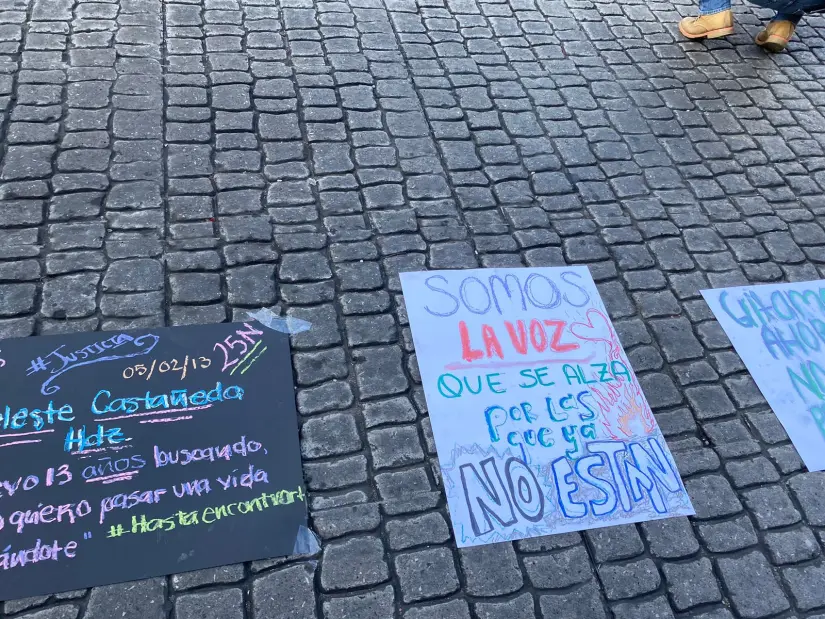 #Justicia 05/02/13 25N
eleste Castañeda
Hdz
evo 13 años buscando,
o quiero pasar una vida
ándote" #Hastaencontrart
SOMOS
LA VOZ
QUE SE ALZA
por las
que ya
NO ESTÁN
AHOR
NO